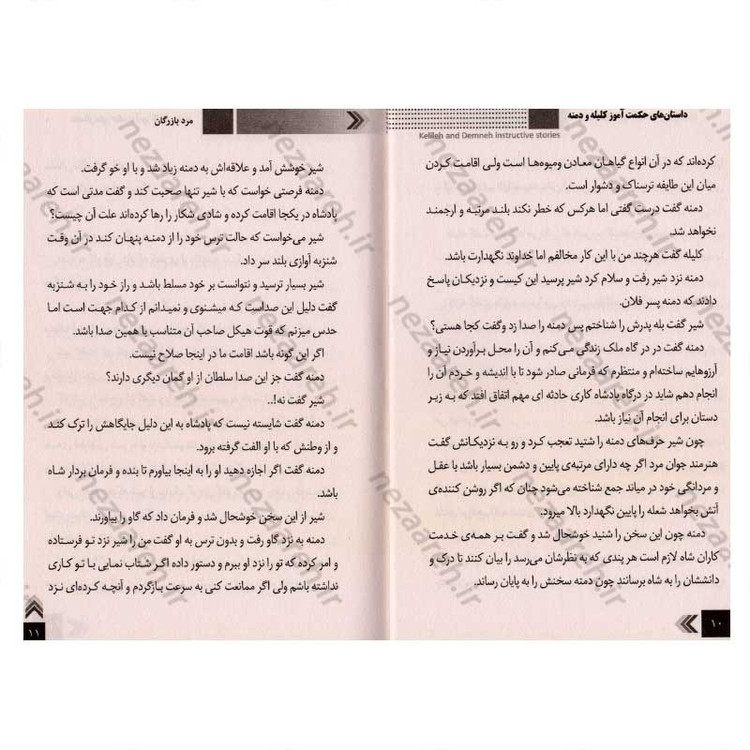 داستان‌های حکمت آموز کلیله و دمنه
Kelileh and Demneh instructive stories
کرده‌اند که در آن انواع گیاهان معادن ومیوه‌ها است ولی اقامت کردن
میان این طایفه ترسناک و دشوار است.
دمنه گفت درست گفتی اما هرکس که خطر نکند بلند مرتبه و ارجمند
نخواهد شد.
کلیله گفت هرچند من با این کار مخالفم اما خداوند نگهدارت باشد.
دمنه نزد شیر رفت و سلام کرد شیر پرسید این کیست و نزدیکان پاسخ
دادند که دمنه پسر فلان.
شیر گفت بله پدرش را شناختم پس دمنه را صدا زد وگفت کجا هستی؟
دمنه گفت در در گاه ملک زندگی می‌کنم و آن را محل برآوردن نیاز و
آرزوهایم ساخته‌ام و منتظرم که فرمانی صادر شود تا با اندیشه و خردم آن را
انجام دهم شاید در درگاه پادشاه کاری حادثه ای مهم اتفاق افتد که به زیر
دستان برای انجام آن نیاز باشد.
چون شیر حرف‌های دمنه را شنید تعجب کرد و رو به نزدیکانش گفت
هنرمند جوان مرد اگر چه دارای مرتبه‌ی پایین و دشمن بسیار باشد با عقل
و مردانگی خود در میاند جمع شناخته می‌شود چنان که اگر روشن کننده‌ی
آتش بخواهد شعله را پایین نگهدارد بالا میرود.
دمنه چون این سخن را شنید خوشحال شد و گفت بر همه‌ی خدمت
کاران شاه لازم است هر پندی که به نظرشان می‌رسد را بیان کنند تا درک و
دانششان را به شاه برسانند چون دمنه سخنش را به پایان رساند.
۱۰
مرد بازرگان
شیر خوشش آمد و علاقه‌اش به دمنه زیاد شد و با او خو گرفت.
دمنه فرصتی خواست که با شیر تنها صحبت کند و گفت مدتی است که
پادشاه در یکجا اقامت کرده و شادی شکار را رها کرده‌اند علت آن چیست؟
شیر می‌خواست که حالت ترس خود را از دمنه پنهان کند در آن وقت
شنزبه آوازی بلند سر داد.
شیر بسیار ترسید و نتوانست بر خود مسلط باشد و راز خود را به شنزبه
گفت دلیل این صداست که میشنوی و نمیدانم از کدام جهت است اما
حدس میزنم که قوت هیکل صاحب آن متناسب با همین صدا باشد.
اگر این گونه باشد اقامت ما در اینجا صلاح نیست.
دمنه گفت جز این صدا سلطان از او گمان دیگری دارند؟
شیر گفت نه!..
دمنه گفت شایسته نیست که پادشاه به این دلیل جایگاهش را ترک کند
و از وطنش که با او الفت گرفته برود.
دمنه گفت اگر اجازه دهید او را به اینجا بیاورم تا بنده و فرمان بردار شاه
باشد.
شیر از این سخن خوشحال شد و فرمان داد که گاو را بیاورند.
دمنه به نزد گاو رفت و بدون ترس به او گفت من را شیر نزد تو فرستاده
و امر کرده که تو را نزد او ببرم و دستور داده اگر شتاب نمایی با تو کاری
نداشته باشم ولی اگر ممانعت کنی به سرعت بازگردم و آنچه کرده‌ای نزد
۱۱
nezaareh.ir